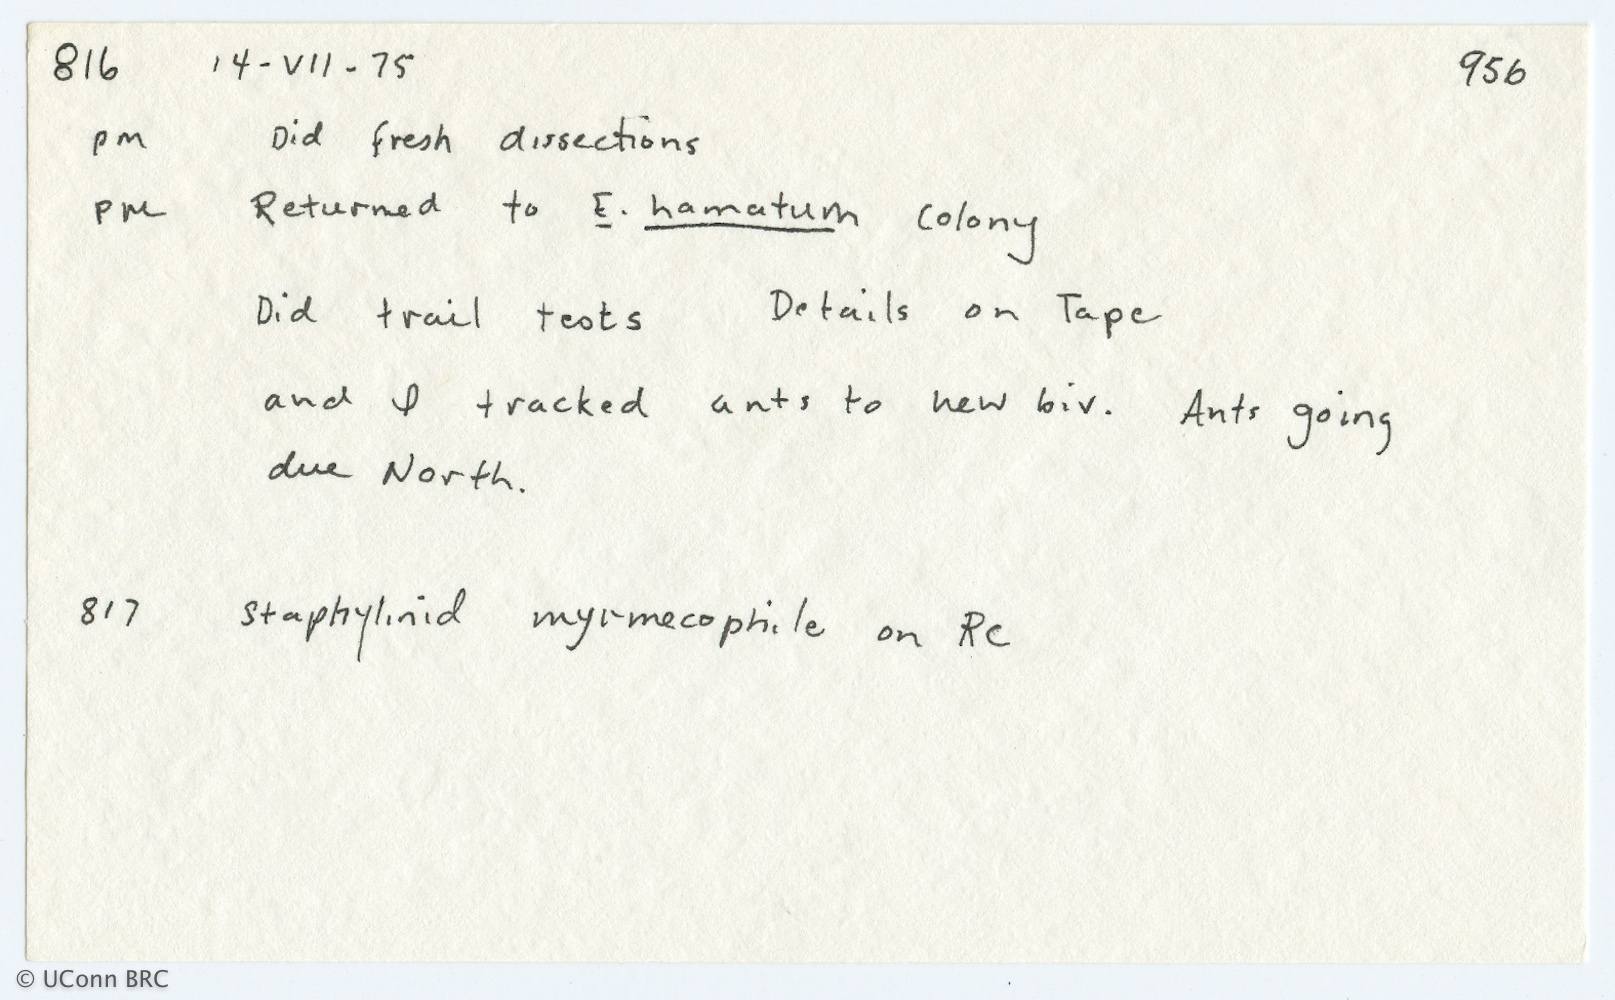 816 14-VII-75 956
pm Did fresh dissections
pm Returned to E. hamatum colony
Did trail tests Details on Tape
and I tracked ants to new biv. Ants going
due North.
817 staphylinid myrmecophile on Rc
© UConn BRC